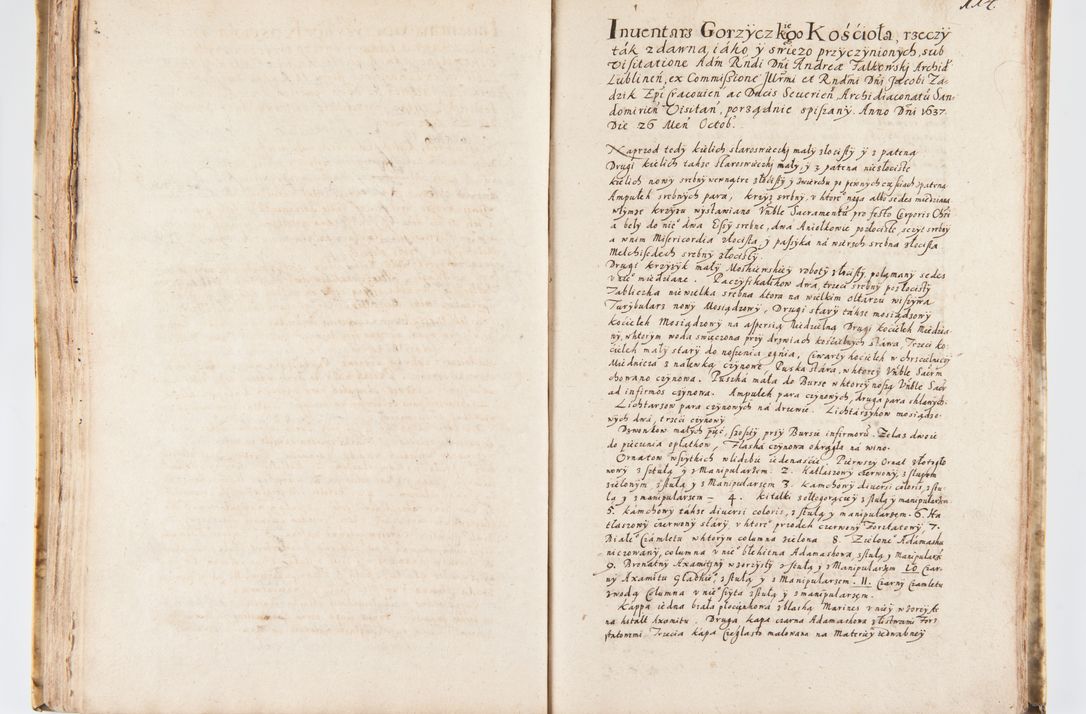 Inuentarz Gorzÿczkięgo Kośćioła, rzeczÿ
ták zdawna, iáko ÿ swiezo przÿczÿnionÿch, sub
Visitatione Adm Rndi Dni Andreæ Falkowskj Archid
Lublineñ, ex Commissione Jllrmi et Rndmi Dnj Jacobi Za-
dzik Epi Cracouieñ ac Ducis Seuerieñ, Archidiaconatú San-
domirieñ Visitañ, porządnie spisanÿ. Anno Dni 1637.
Die 26 Meñ Octob.
Naprzod tedÿ kielich staroswieckj małÿ złocistÿ ÿ z patena
Drugi kielich takze staroswieckj małÿ, ÿ z patena niezłociste
kielich nowÿ srebnÿ wewnątrz złocistÿ ÿ zwierchu po pewnÿch częsciach zpatena
Ampułek srebnÿch para, krzÿz srebnÿ, v ktore° noga albo sedes miedziana
włÿmze krzÿzu wÿstawiano Vnble Sacramentú pro festo Corporis Chri
a belÿ do nie° dwa Essÿ srebne, dwá Aniołkowie pozłociste, sczÿt srebnÿ
a wnim Misericordia złocista, ÿ passÿka ná wierzch srebna złocista
Melchisedech srebnÿ złocistÿ.
Drugi krzÿzÿk małÿ Moskiewskieÿ robotÿ złocistÿ, połamanÿ sedes
v nie° miedziane. Paczÿfikalikow dwa, trzeci srebnÿ pozłocistÿ
Tabliczka niewielka srebna ktora na wielkim ołtarzu wisÿwa
Turÿbularz nowÿ Mosiądzowÿ, Drugi starÿ także mosiądzowÿ
Kociełek Mosiądzowÿ na aspersią Niedzielną Drugi kociełek Miedzia
nÿ, wktorÿm woda swięczona przÿ drzwiach kościelnÿch stawa, Trzeci ko-
ciełek małÿ starÿ do noszenia ognia, Czwartÿ kociełek w chrzcielnicÿ
Miednicza z nalewką czÿnowe Puska stára, wktoreÿ Vnble Sacrm
chowano czÿnowa. Puszka mała do Burse wktoreÿ noszą Vnble Sacr
ad infirmos czÿnowa. Ampułek para czÿnowÿch, druga para sklanÿch.
Lichtarzow para czÿnowÿch ná drzewie. Lichtárzÿkow mosiądzo-
wÿch dwá, trzeci czÿnowÿ
Dzwonkow małÿch pięć, szostÿ przÿ Bursie infirmorú. Zelaz dwoie
do pieczenia opłatkow, Flaská czÿnowa okrągła ná wino.
Ornatow wszÿtkich wliczbie iedenaście. Pierwszÿ Ornat złotogło
nowÿ z stułą ÿ z Manipularzem. 2. Katlaszowÿ czerwonÿ, z słupem
zielonÿm zstułą ÿ z Manipularzem 3. kamchowÿ diuersi coloris, zstu-
łą ÿ z manipularzem - 4. kitaÿki zołtogorączeÿ z stułą ÿ manipularzem
5. kamchowÿ takze diuersi coloris, z stułą ÿ manipularzem. 6. Ha
tłaszowÿ czerwonÿ starÿ, v ktore° przodek czerwonÿ Forstatowÿ, 7.
Białe° Czámletu wktorÿm columna zielona 8. Zielone° Adamasku
niczowanÿ, columna v nie° błekitna Adamaskowa zstułą ÿ Manipularz
9. Brunatnÿ Axamitnÿ wzorzÿstÿ zstułą ÿ z Manipularzem 10 Czar-
nÿ Axamitu Gładkie°, z stułą ÿ z Manipularzem. 11. Czarnÿ Czamletu
zwodą Columna v nie° szÿta zstułą ÿ z manipularzem.
Kappa iedna biała płocienkowa zblaską Marines v nieÿ wzorzÿste
na kstałt Axamitu. Druga kapa czarna Adamaskowa złistwami Fors
statowemi. Trzecia kapa Czegłasto malowana na Materieÿ iedwabneÿ